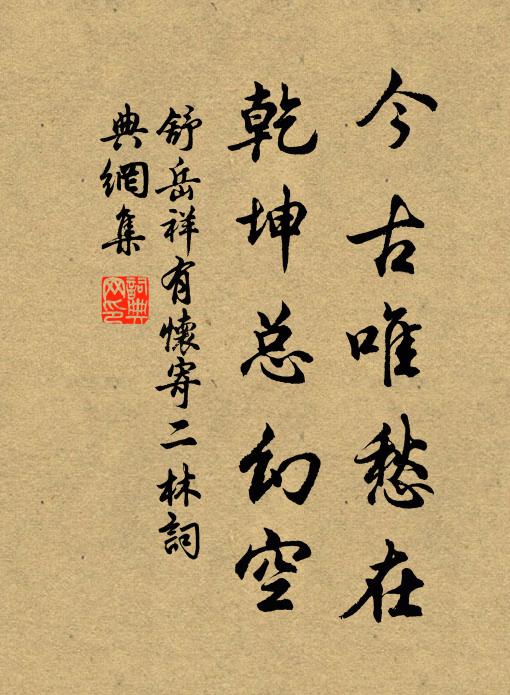 今古唯愁在
乾坤总幻空
舒岳祥有懷寄二林詞
典網集
詞典网印